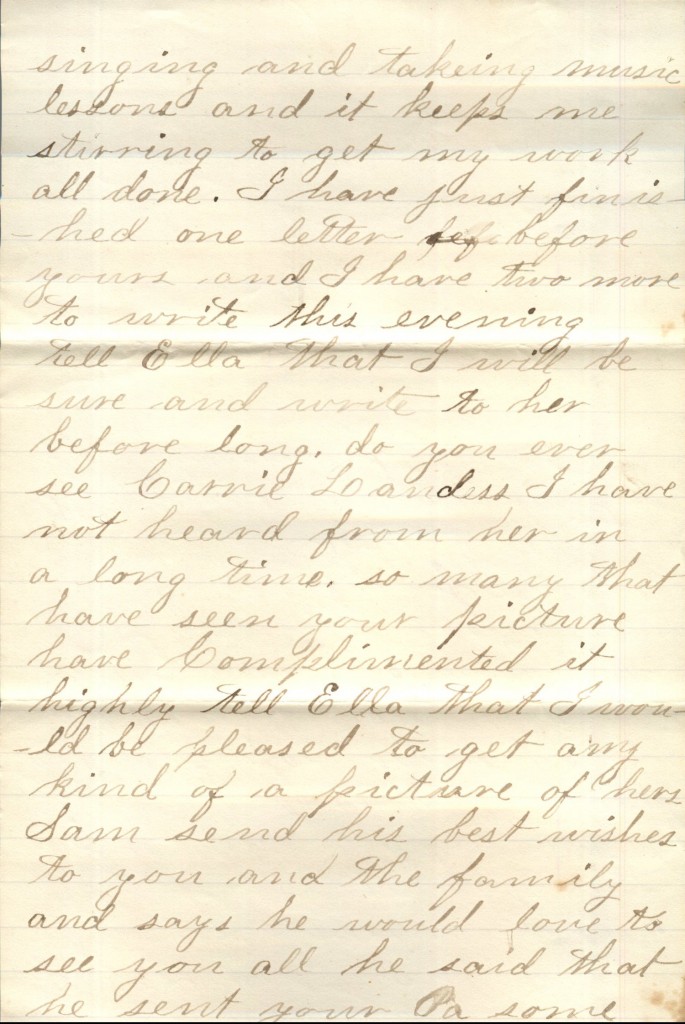 singing and takeing music
lessons and it keeps me
stirring to get my work
all done. I have just finis-
-hed one letter before
yours and I have two more
to write this evening
tell Ella that I will be
sure and write to her
before long. do you ever
see Carrie Landess I have
not heard from her in
a long time. so many that
have seen your picture
have Complimented it
highly tell Ella that I wou-
-ld be pleased to get any
kind of a picture of hers
Sam send his best wishes
to you and the family
and says he would love to
see you all he said that
he sent your Pa some